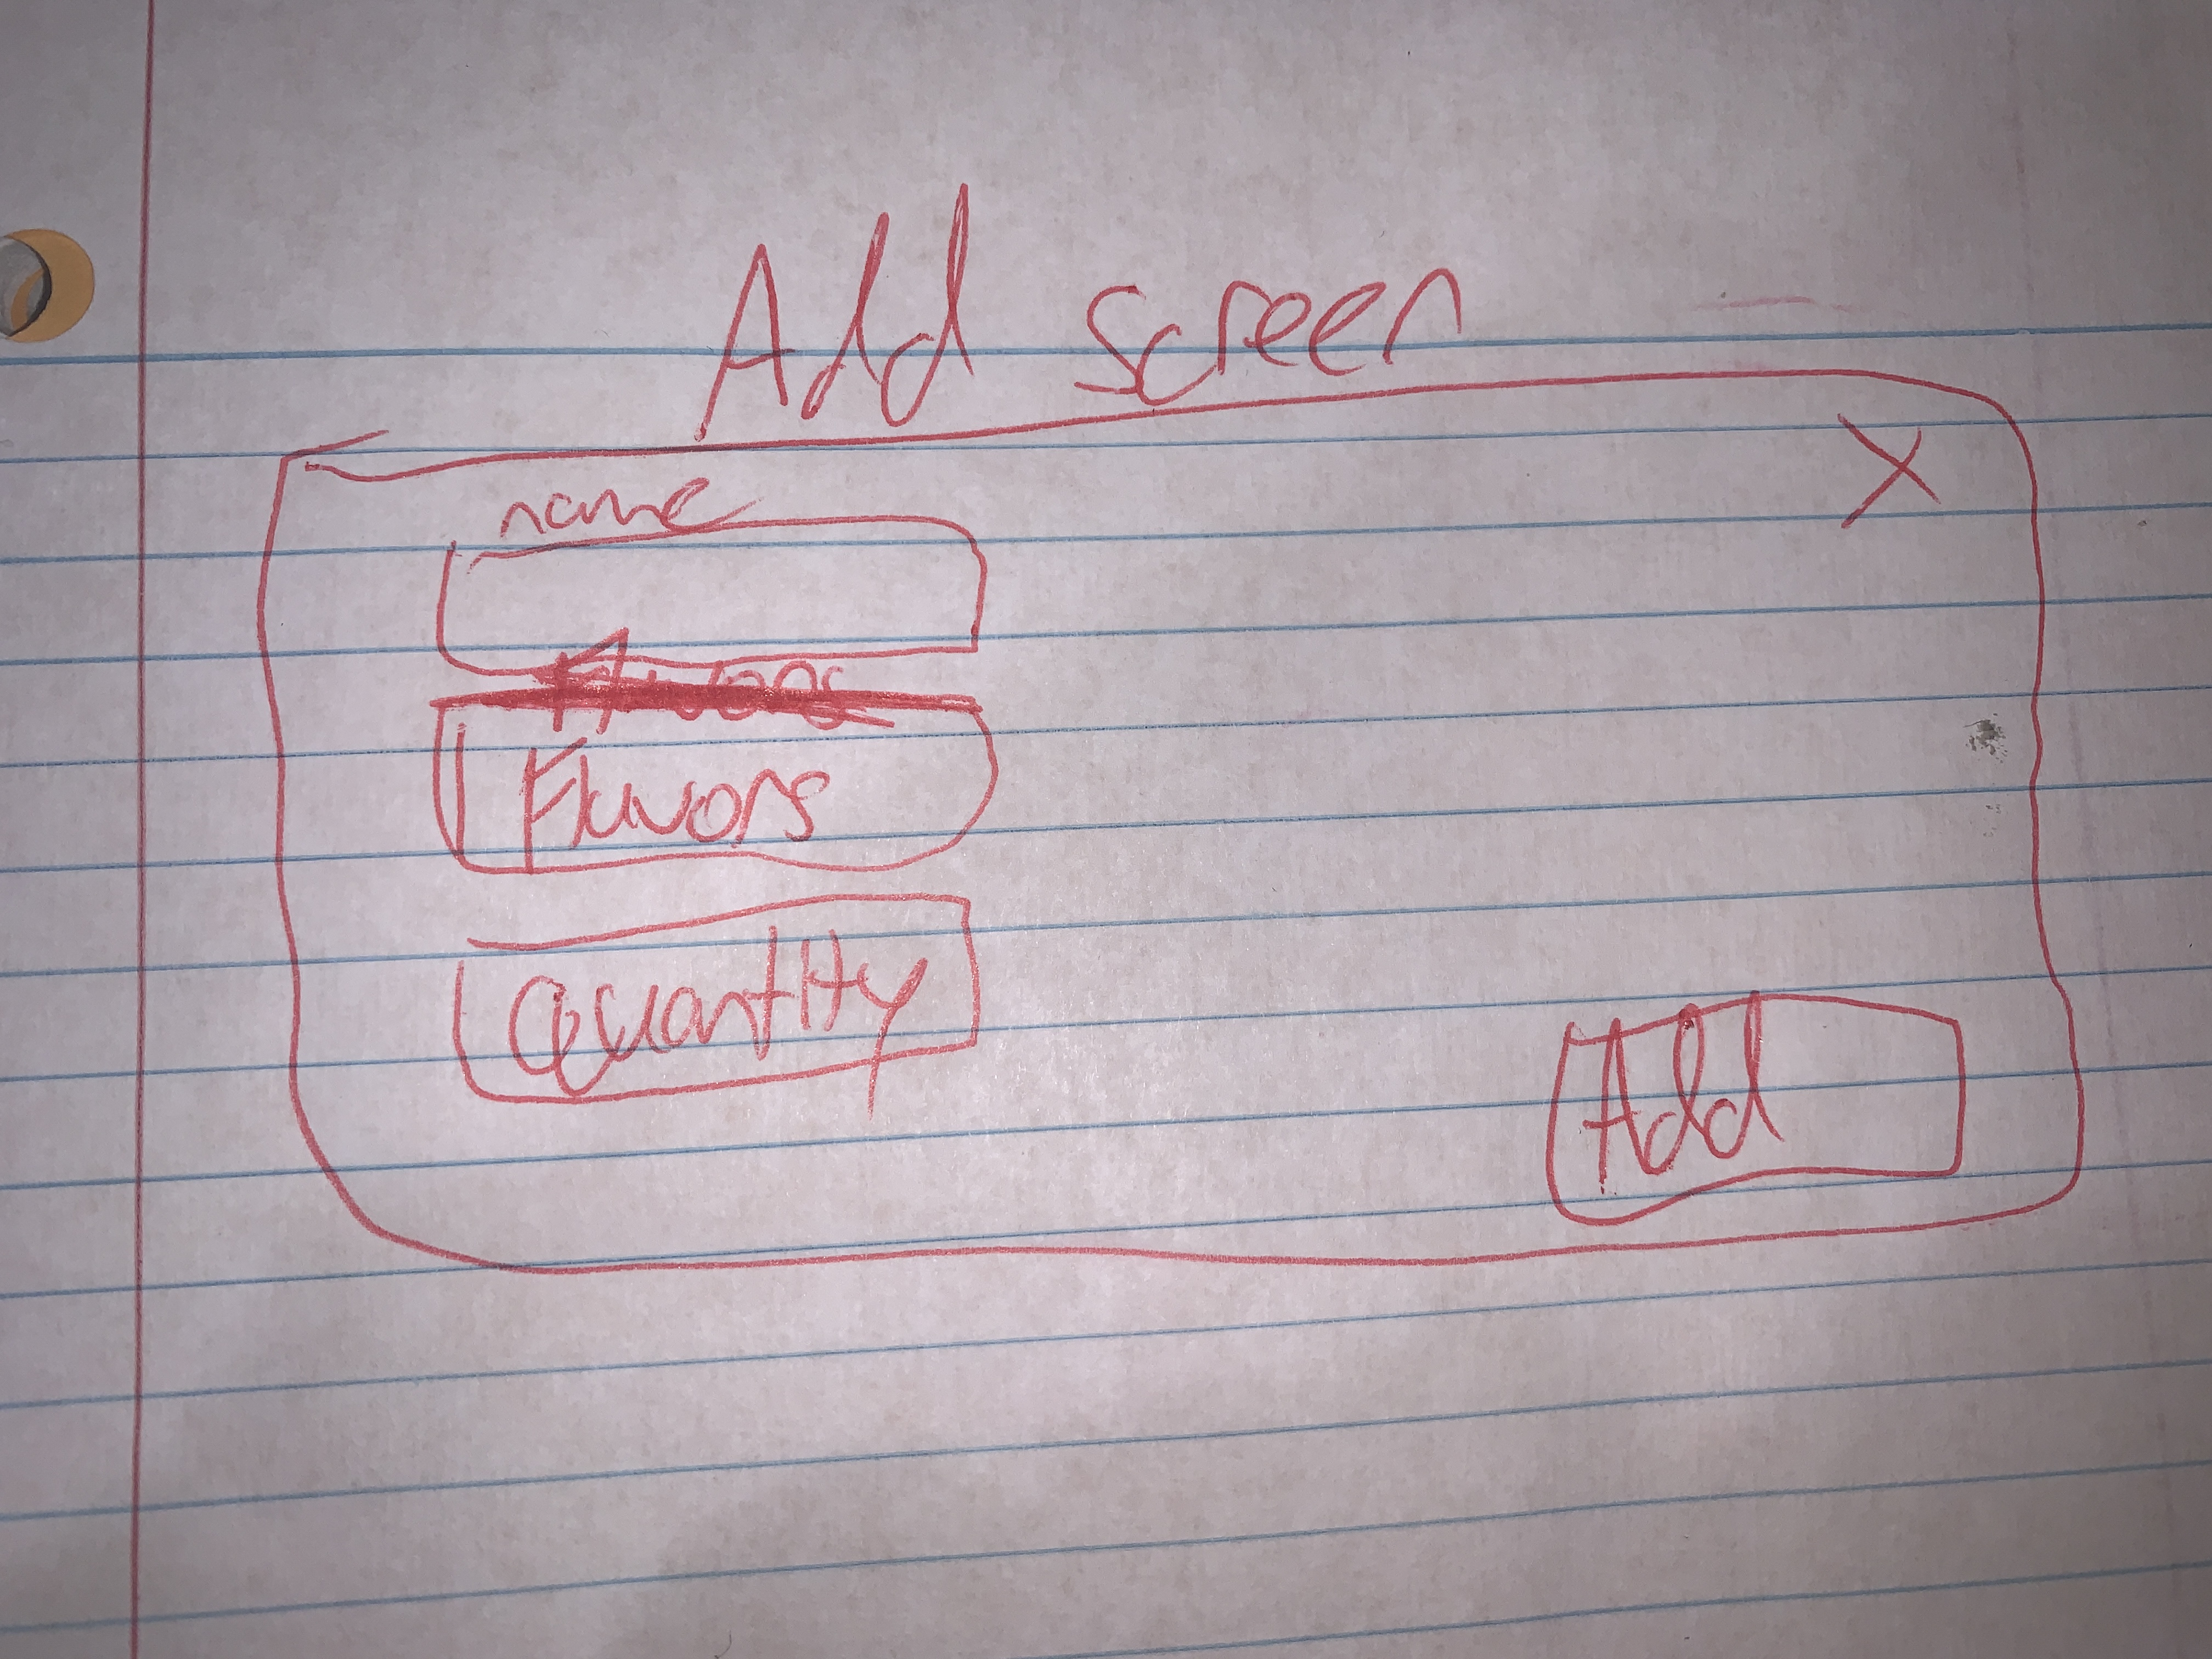 Add screen
X
name
Flavors
Flavors
Quantity
Add